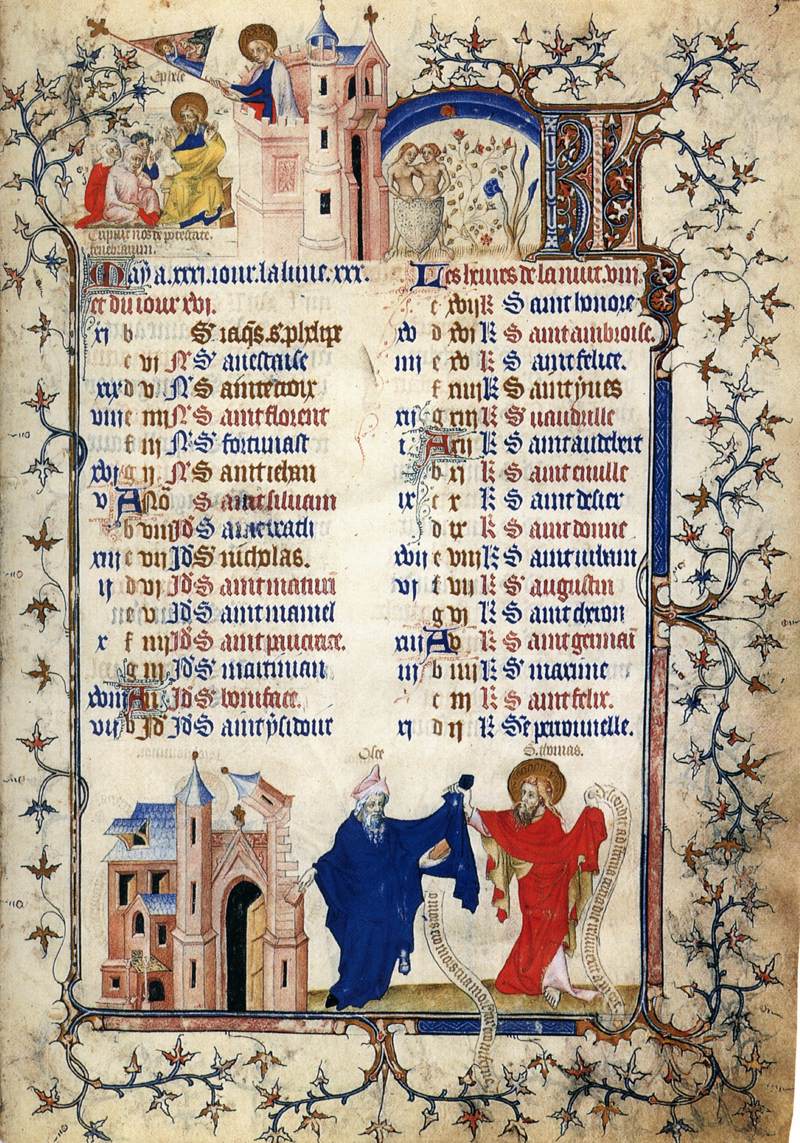 Ephese
Eripuit nos de potestate
tenebrarum.
KL
May a .xxxi. iour. la lune .xxx.
et du iour xvi.
xi b S iaqs. s. phelipe
c vi N S anestaise
xix d v N S aintecroix
viii e iiii N S aint florent
f iii N S fortunast
xvi g ii N S aint iehan
v A No S aint siluain
b viii Id S
xiii c vii Id S nicholas.
ii d vi Id S aint maturi
e v Id S aint mamel
x f iiii Id S aint pancrace.
g iii Id S marcinian
xviii A ii Id S boniface.
vii b Id Id S aint ysidour
Les heures de la nuit. viii.
c xvii K S aint honore
xv d xvi K S aint ambroise.
iiii e xv K S aynt felice.
f xiiii K S aint yues
xii g xiii K S uandrille
i A xii K S aint audebert
b xi K S aint
ix c x K S aint desier
d ix K S aint donne
xvii e viii K S aint urbain
vi f vii K S augustin
g vi K S aint
xiiii A v K S aint germai
iii b iiii K S maxime
c iii K S aint felix.
xi d ii K Se peronnelle.
Osee
S. thomas.
o mors ero mors tua morsus